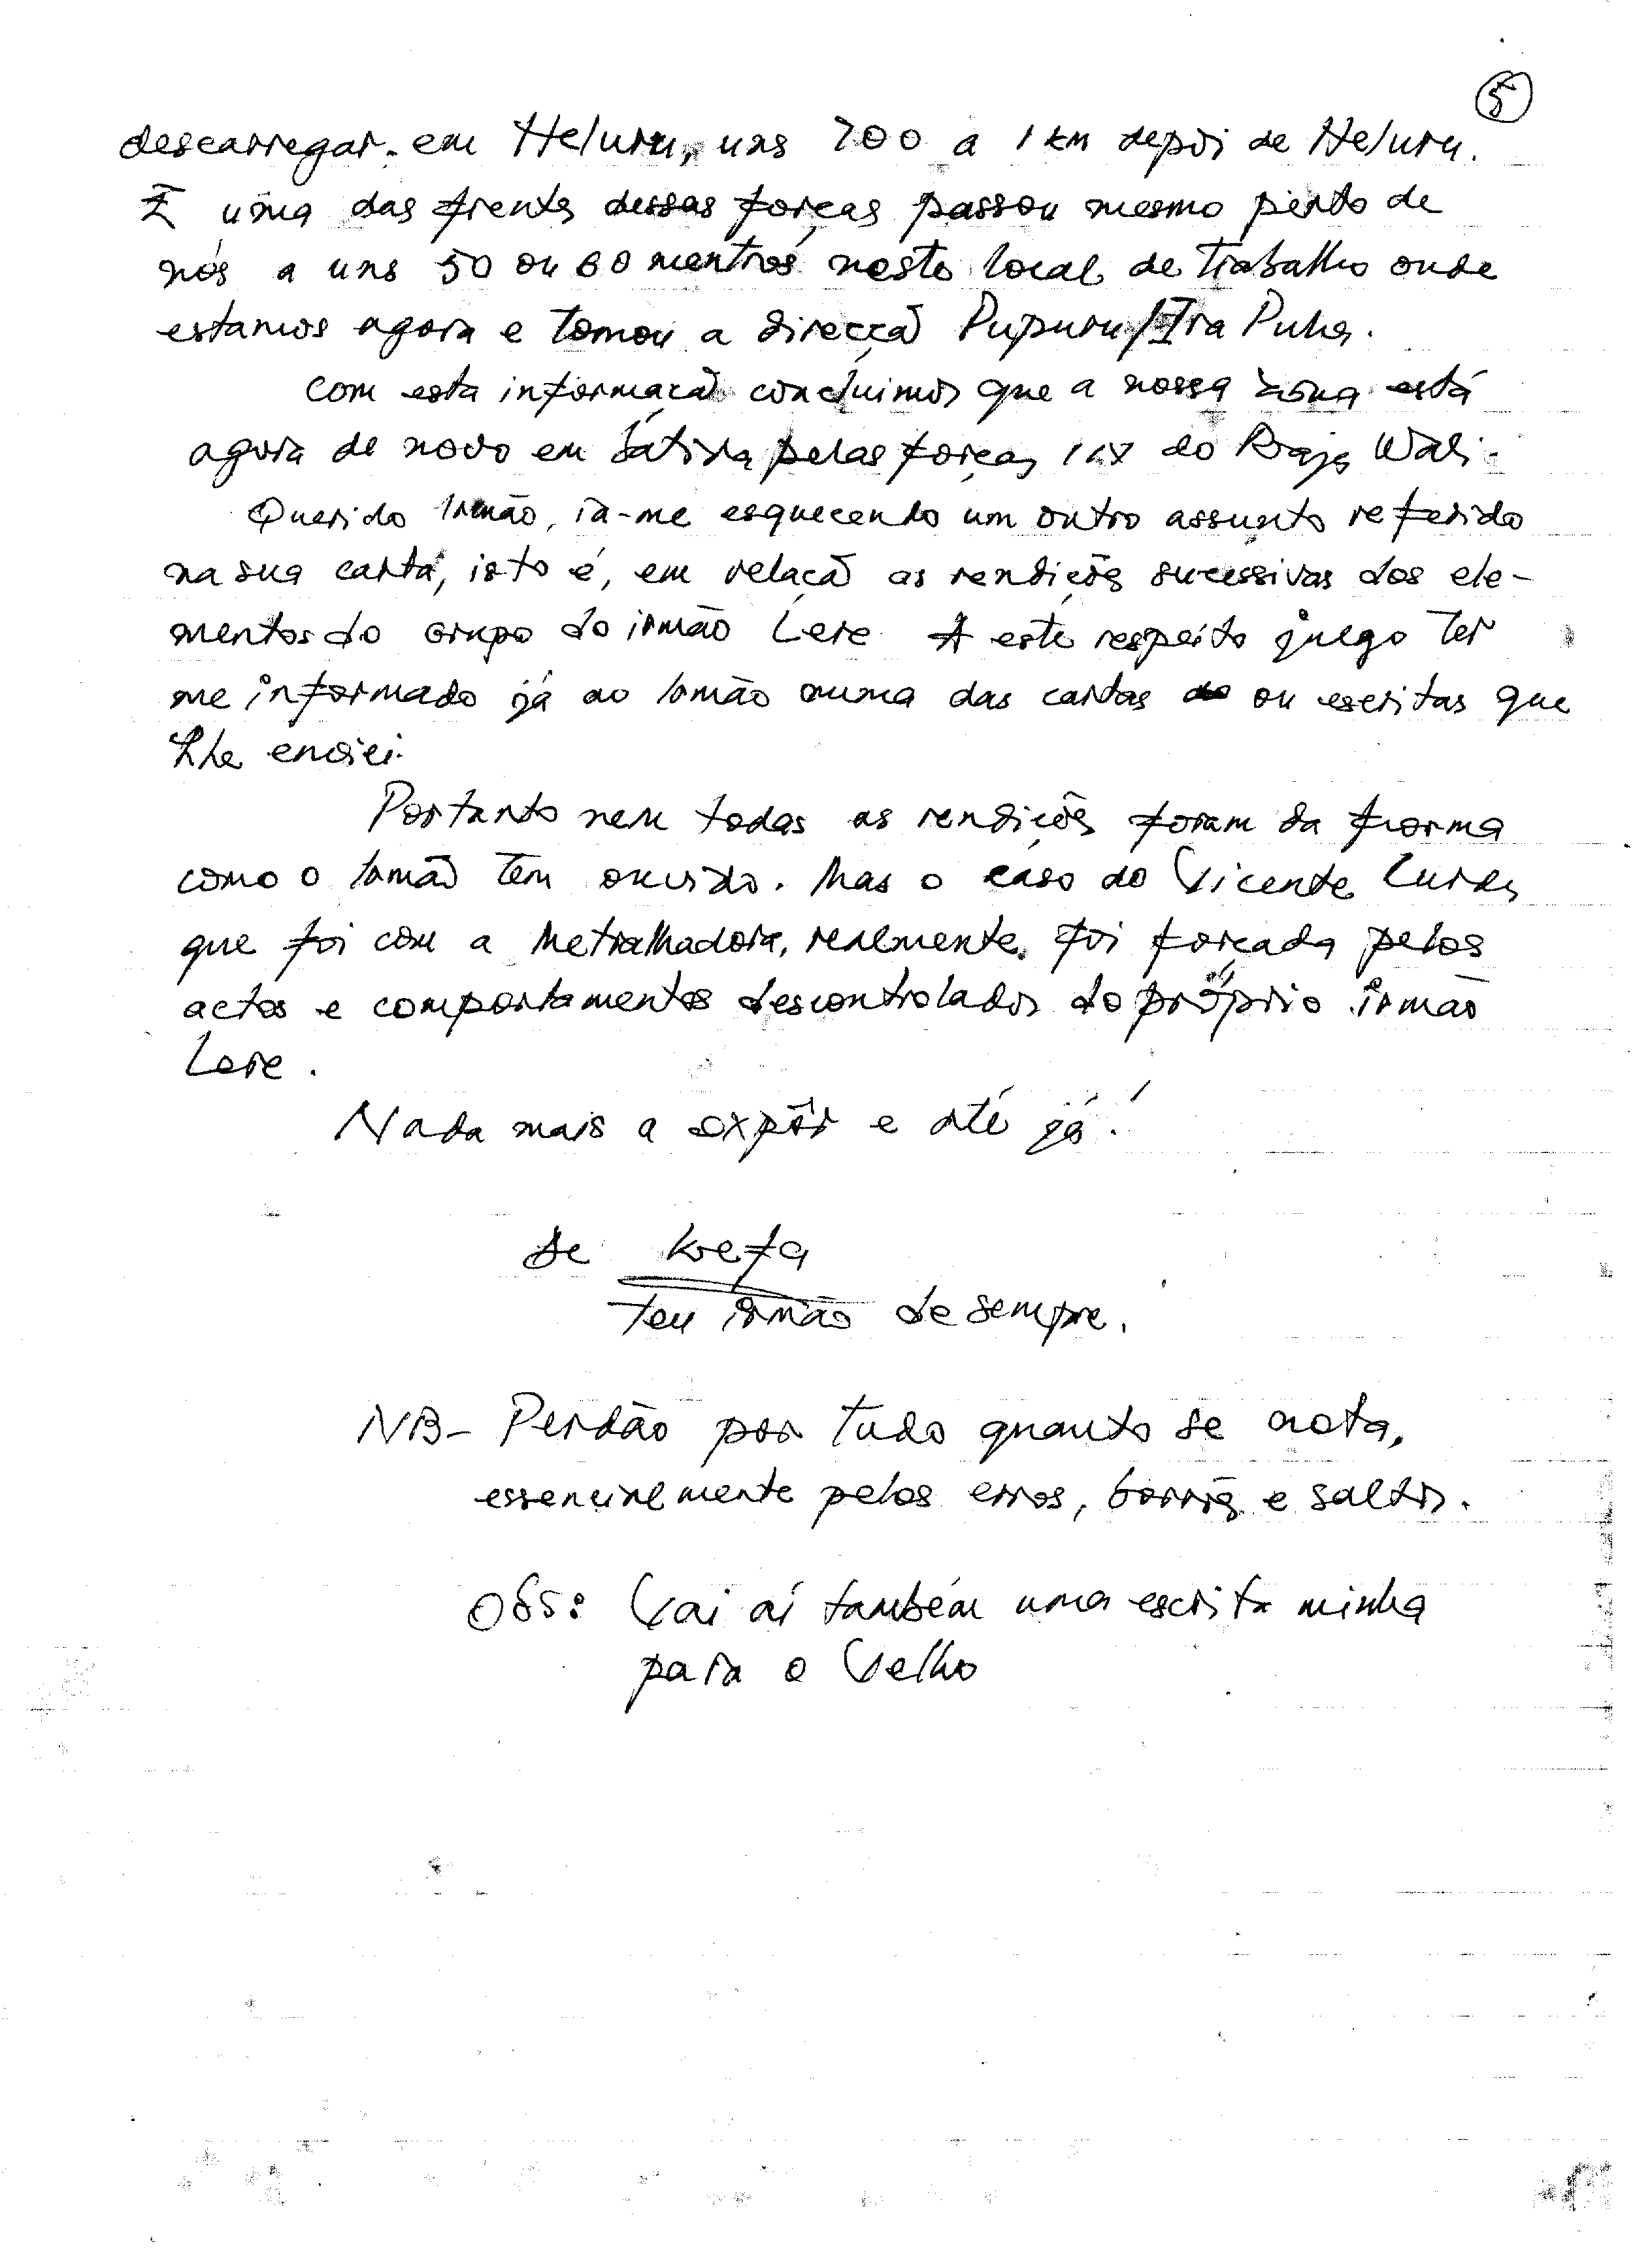 5
descarregar. em Heluru, uns 700 a 1 km depoi de Heluru.
E uma das frentes dessas forças passou mesmo perto de
nós a uns 50 ou 60 mentros neste local de trabalho onde
estamos agora e tomou a direcçã Pupuru/Ira Puha.
Com esta informaçã concluimos que a nossa zona está
agora de novo em batida pelas forças do Raja Wali.
Querido Irmão, ia-me esquecendo um outro assunto referido
na sua carta, isto é, em relaçã as rendiçõs sucessivas dos ele-
mentos do grupo do irmão Lere A este respeito julgo ter
me informado já ao Irmão numa das cartas ou escritas que
lhe enviei.
Portanto nem todas as rendiçõs foram da frorma
como o Irmão tem ouvido. Mas o caso do Vicente
que foi com a Metralhadora, realmente foi forçada pelos
actos e comportamentos descontrolados do próprio irmão
Lere.
Nada mais a expôr e até já!
De Krefa
teu irmão de sempre.
NB- Perdão por tudo quanto se nota,
essencialmente pelos erros, borrõs e saltos.
Obs: Vai aí também uma escrita minha
para o Velho